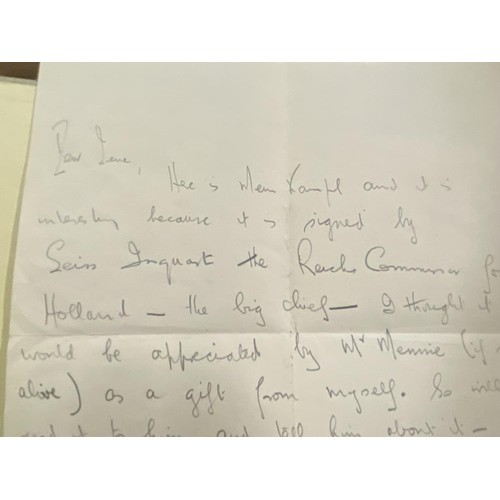 Dear Irene,
Here is Mein Kampf and it is
interesting because it is signed by
Seiss Inquart the Reichs Commissar for
Holland — the big chief — I thought it
would be appreciated by Mr Mennie (if
alive) as a gift from myself. So
send it to him and tell him about it —